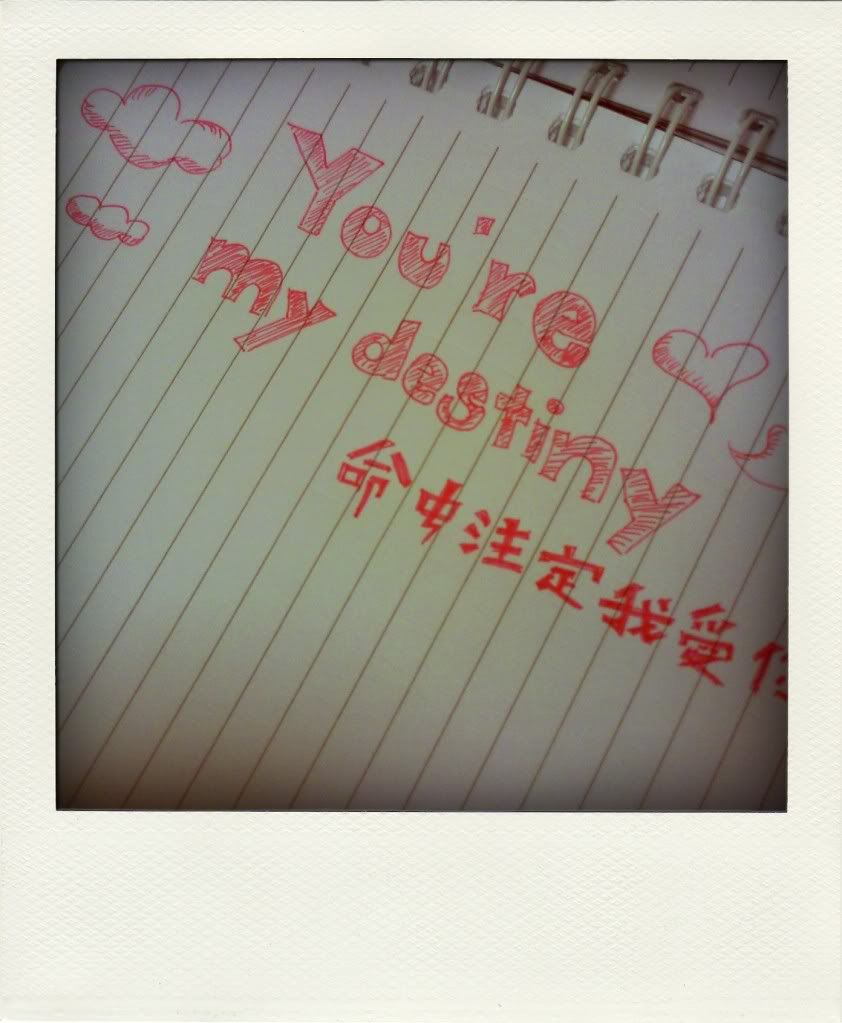 You're
my destiny
命中注定我愛